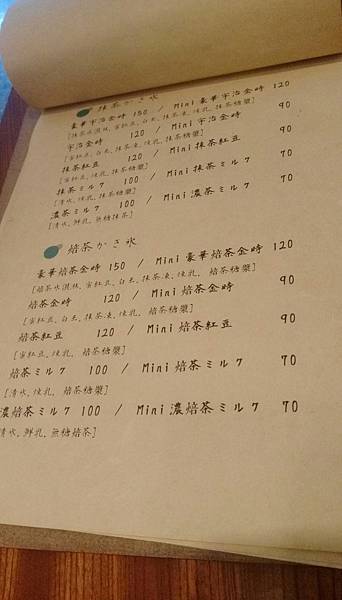 抹茶かき氷
豪華宇治金時 150 / Mini 豪華宇治金時 120
[抹茶冰淇淋, 蜜紅豆, 白玉, 抹茶凍, 煉乳, 抹茶糖漿]
宇治金時 120 / Mini 宇治金時 90
[蜜紅豆, 白玉, 抹茶凍, 煉乳, 抹茶糖漿]
抹茶紅豆 120 / Mini 抹茶紅豆 90
[蜜紅豆, 煉乳, 抹茶糖漿]
抹茶ミルク 100 / Mini 抹茶ミルク 70
[清水, 煉乳, 抹茶糖漿]
濃茶ミルク 100 / Mini 濃茶ミルク 70
[清水, 鮮乳, 無糖抹茶]
焙茶かき氷
豪華焙茶金時 150 / Mini 豪華焙茶金時 120
[焙茶冰淇淋, 蜜紅豆, 白玉, 抹茶凍, 煉乳, 焙茶糖漿]
焙茶金時 120 / Mini 焙茶金時 90
[蜜紅豆, 白玉, 抹茶凍, 煉乳, 焙茶糖漿]
焙茶紅豆 120 / Mini 焙茶紅豆 90
[蜜紅豆, 煉乳, 焙茶糖漿]
焙茶ミルク 100 / Mini 焙茶ミルク 70
[清水, 煉乳, 焙茶糖漿]
濃焙茶ミルク 100 / Mini 濃焙茶ミルク 70
清水, 鮮乳, 無糖焙茶]